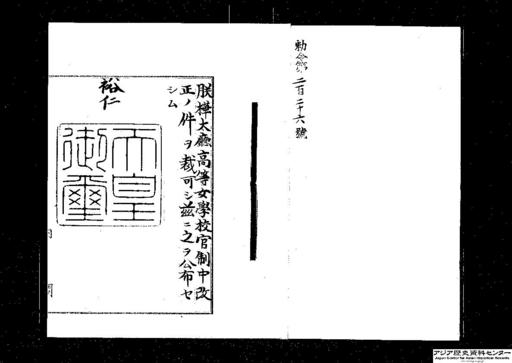 勅令第二百二十六號
朕樺太廳高等女學校官制中改
正ノ件ヲ裁可シ茲ニ之ヲ公布セ
シム
裕仁
天皇
御璽
アジア歴史資料センター
Japan Center for Asian Historical Records